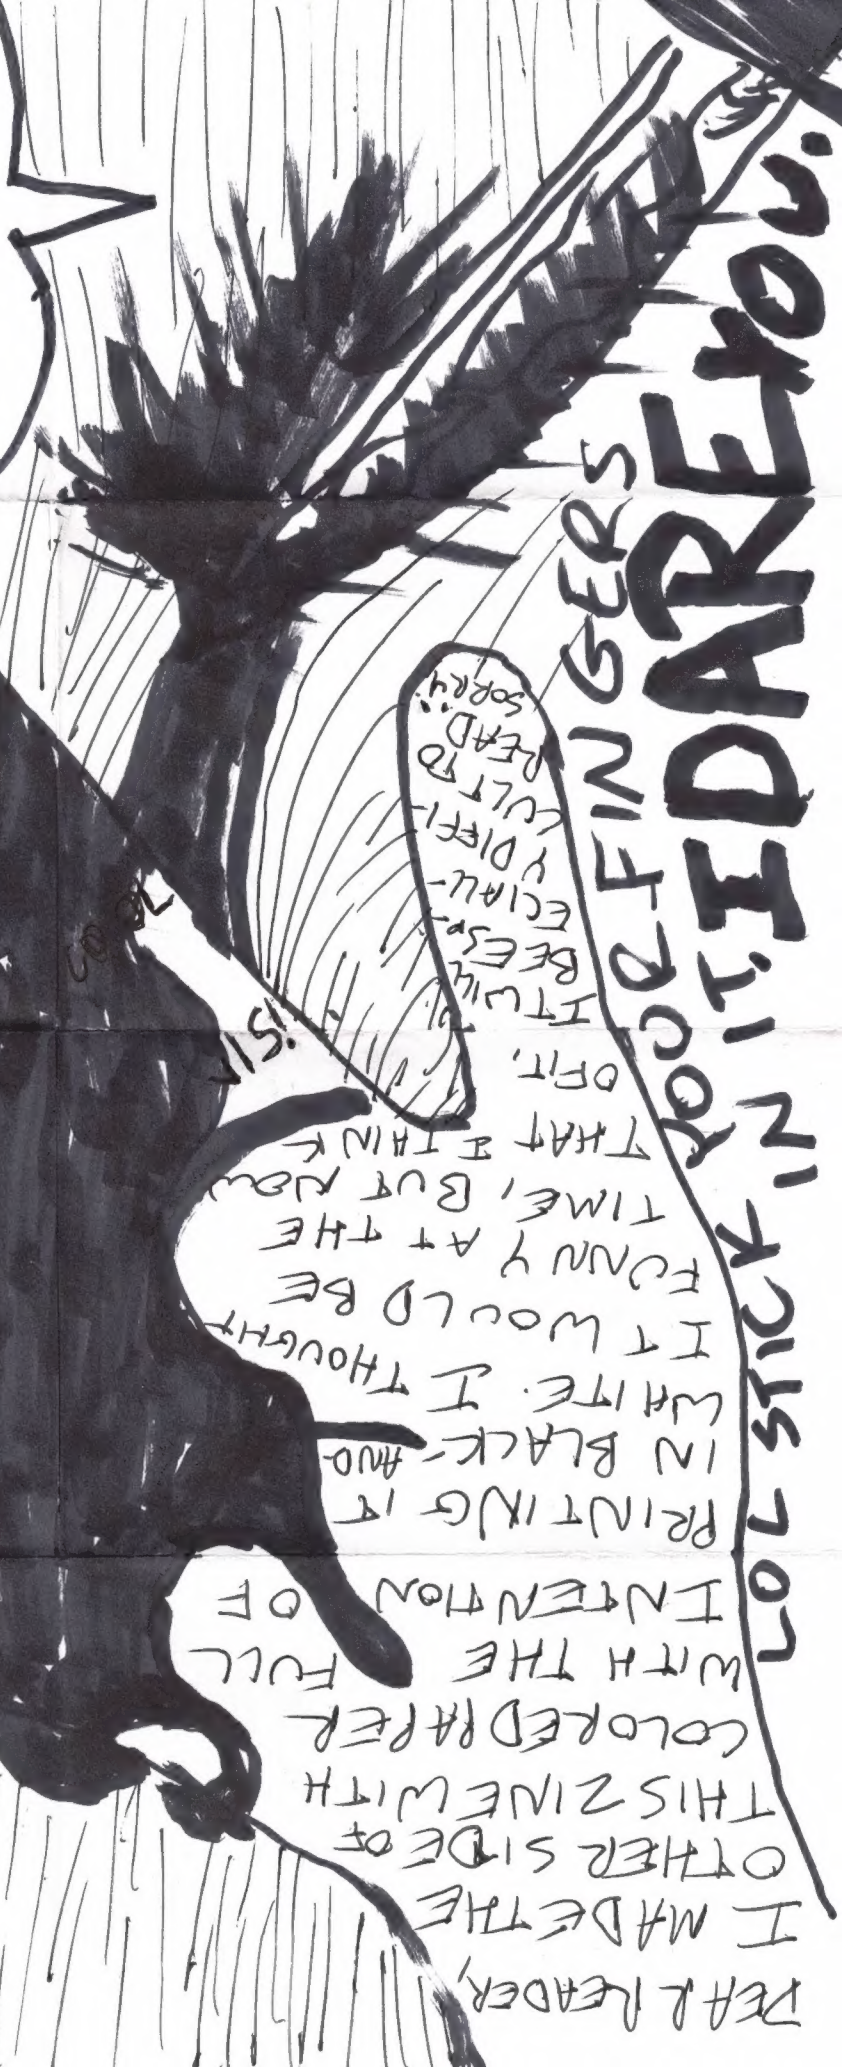 DEAR READER,
I MADE THE
OTHER SIDE OF
THIS ZINE WITH
COLORED PAPER
WITH THE FULL
INTENTION OF
PRINTING IT
IN BLACK-AND-
WHITE. I THOUGHT
IT WOULD BE
FUNNY AT THE
TIME, BUT NOW
THAT I THINK
OF IT,
IT WILL
BE ESP-
ECIALL-
Y DIFFI-
CULT TO
READ.
SORRY
LOL STICK YOUR FINGERS
IN IT. I DARE YOU.